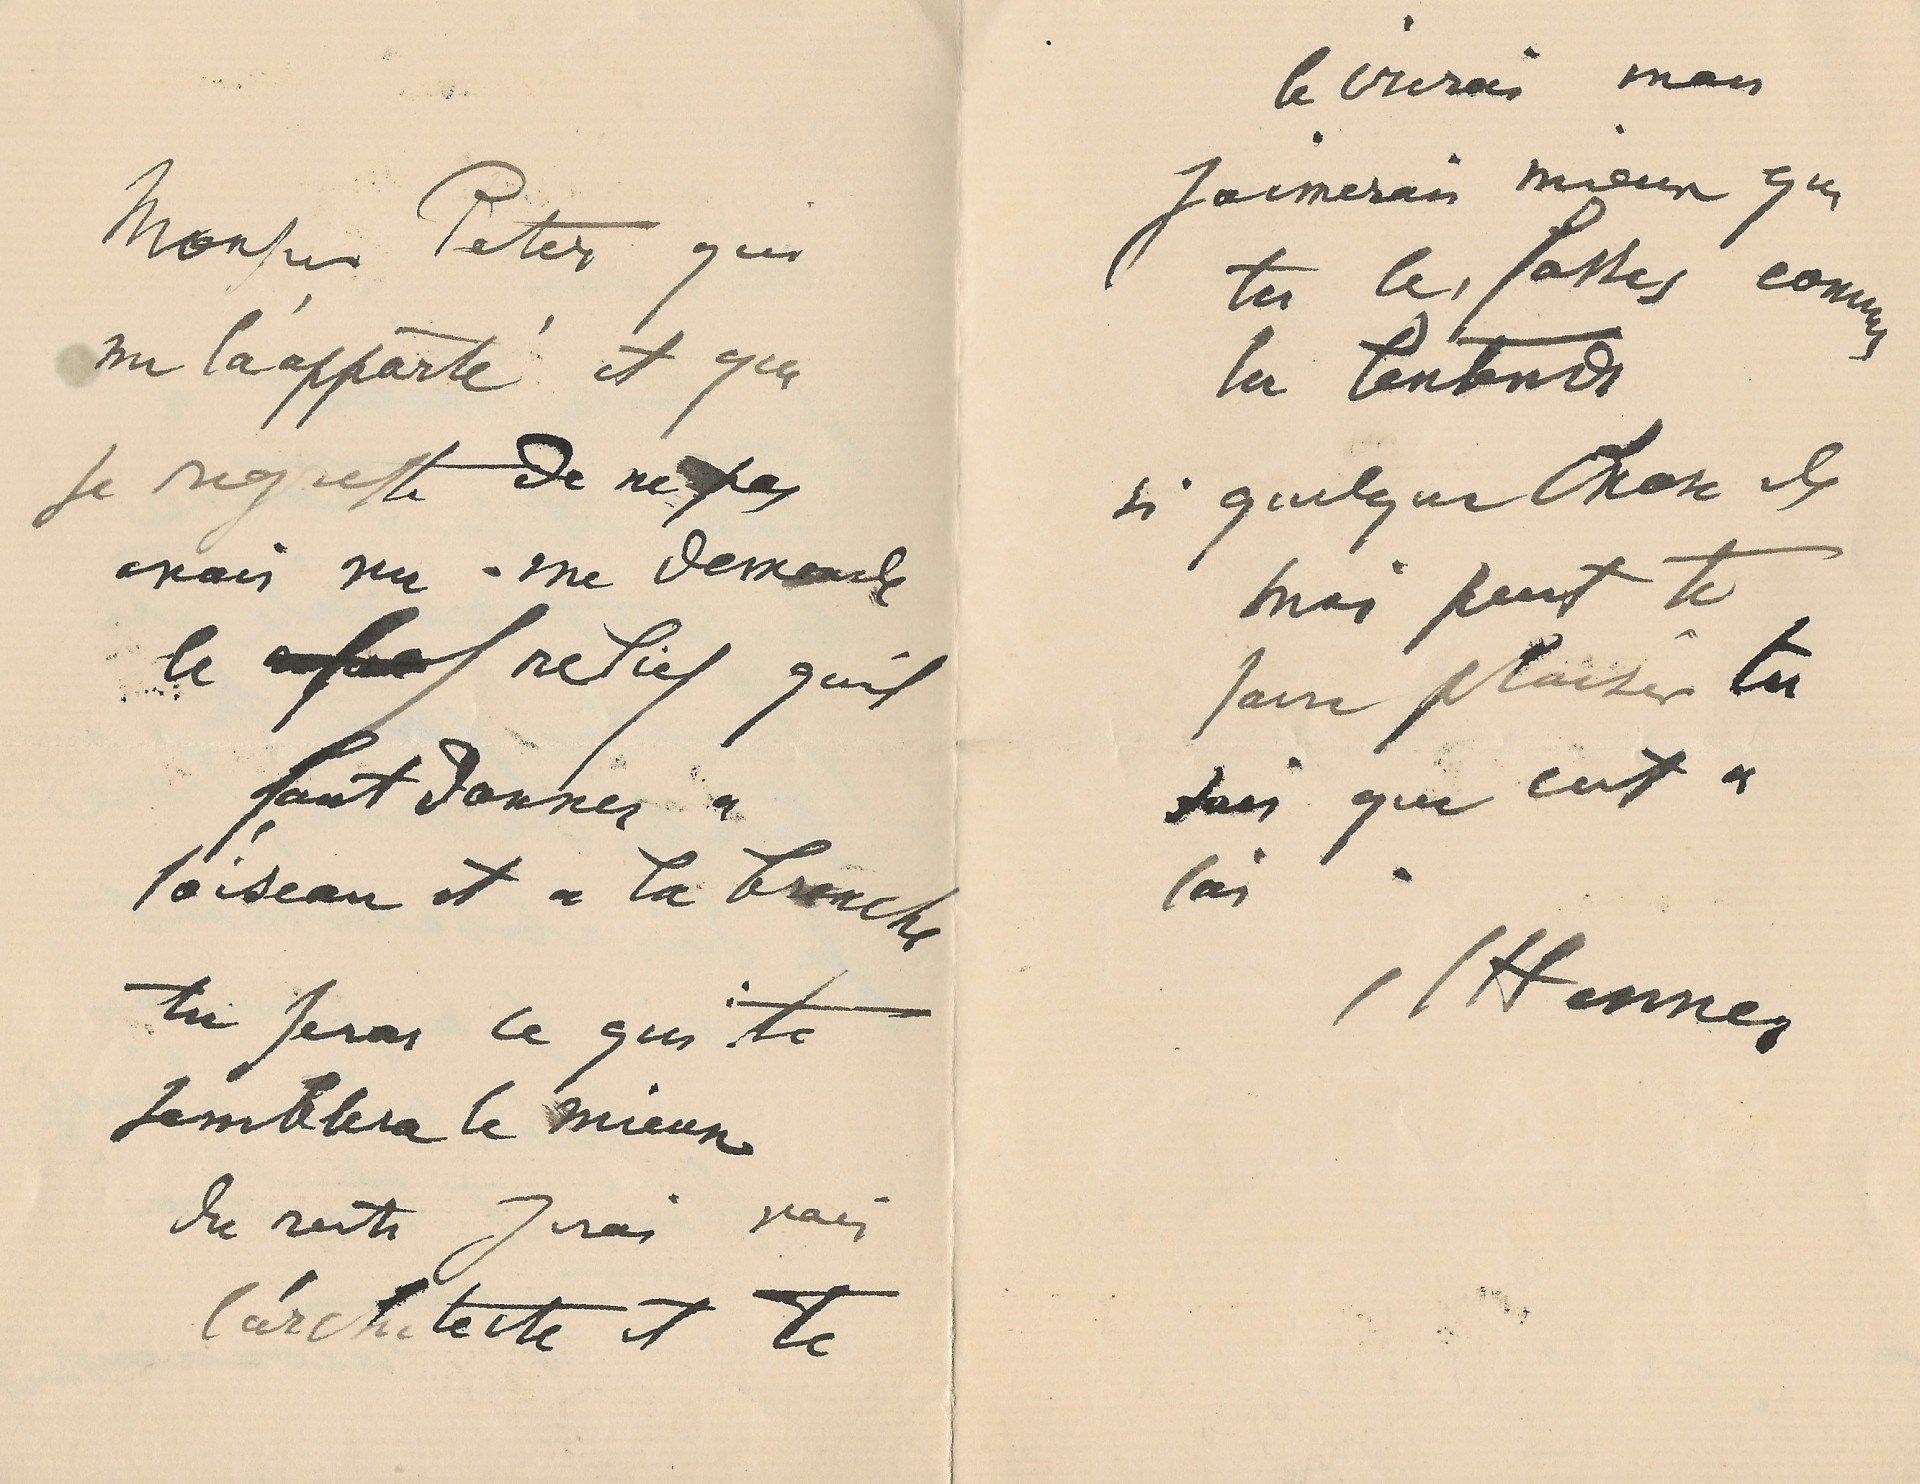 Monsieur Peter qui
me l'a apporté et que
je regrette de ne pas
avoir vu me demande
le relief qu'il
faut donner a
l'oiseau et a la branche
tu feras ce qui te
semblera le mieux
du reste j'irai voir
l'architecte et te
le crierai mais
j'aimerais mieux que
tu le fasses comme
tu l'entends
si quelque chose de
moi peut te
faire plaisir tu
sais que c'est a
toi
JJ Henner